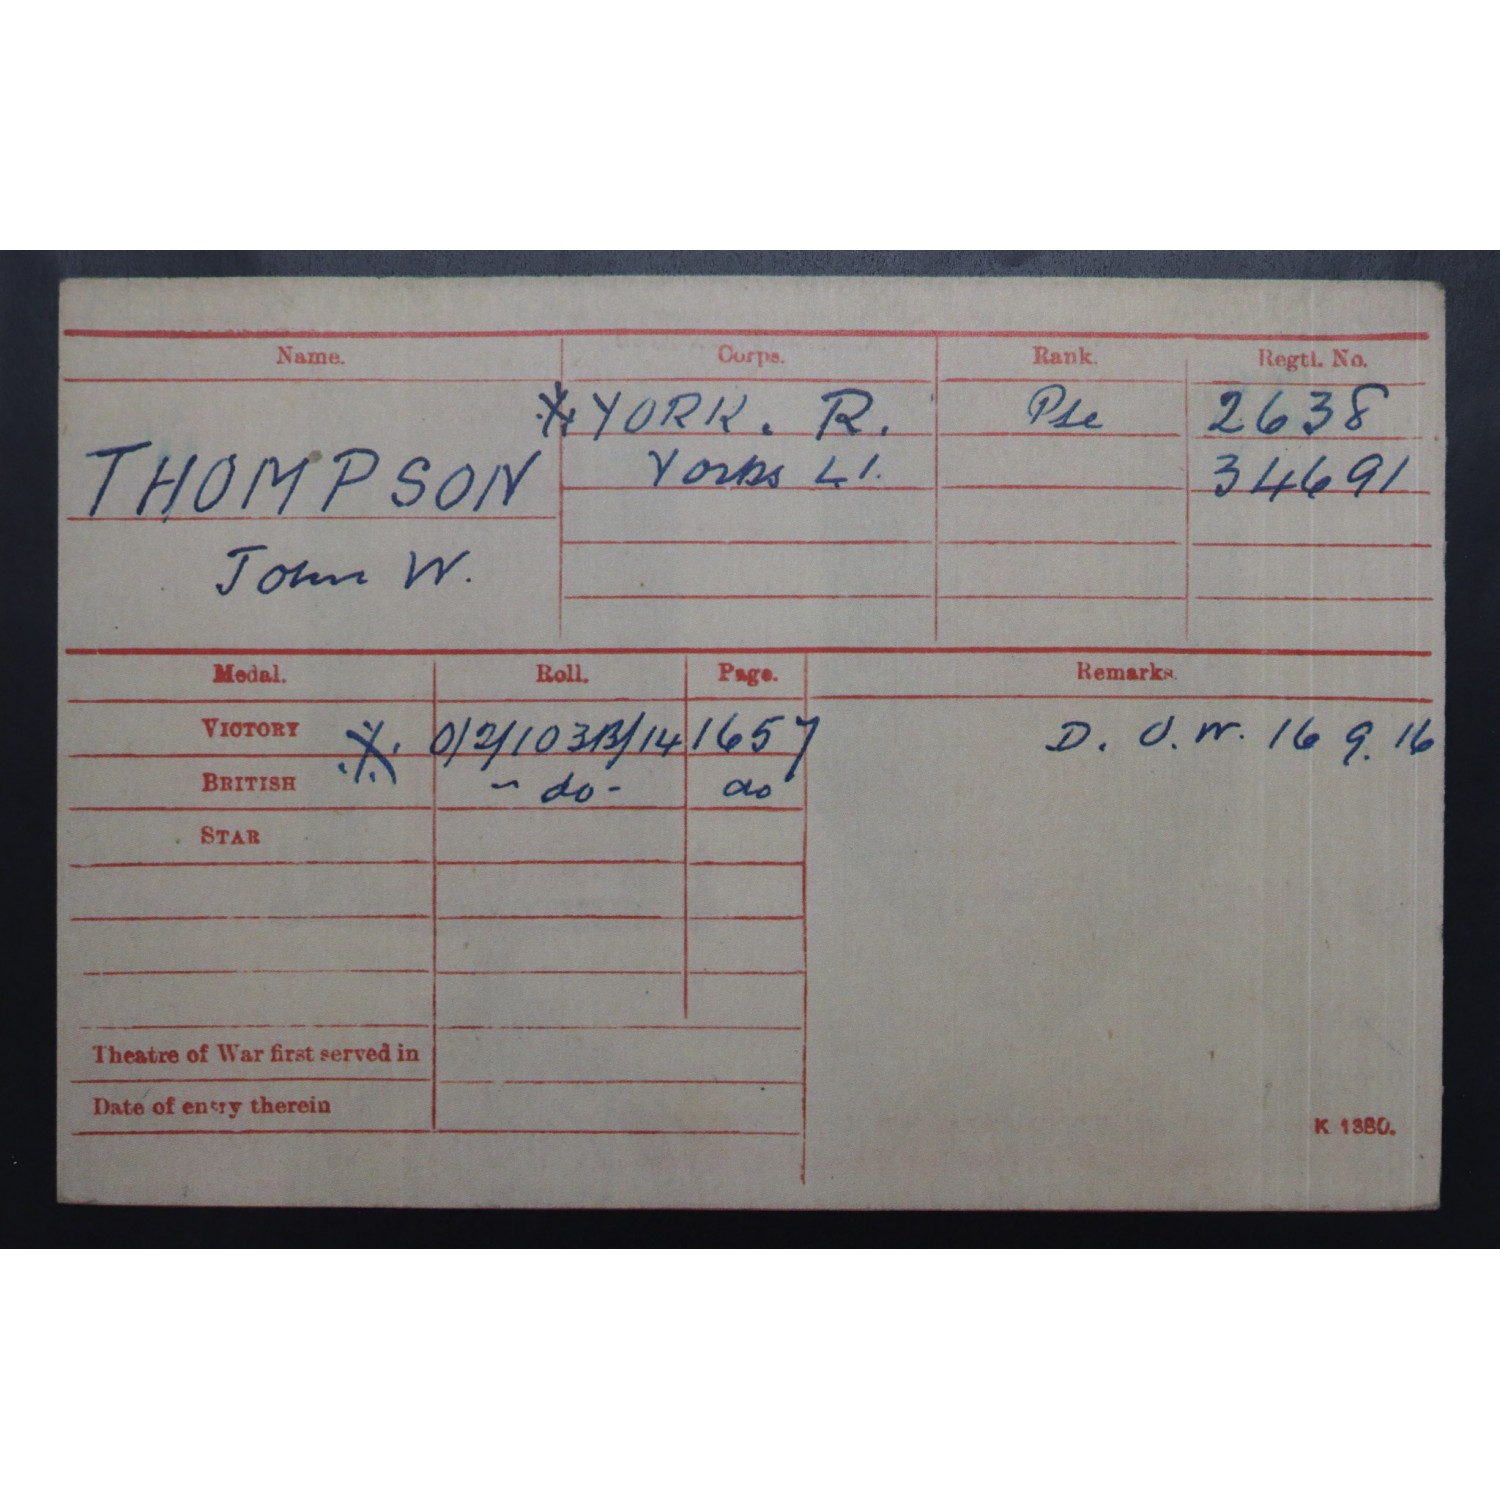 Name. Corps. Rank. Regtl. No.
YORK. R. Pte 2638
THOMPSON Yorks L.I. 34691
John W.
Medal. Roll. Page. Remarks.
VICTORY O/2/103B/14 1657 D. O. W. 16 9. 16
BRITISH - do - do
STAR
Theatre of War first served in
Date of entry therein
K 1380.